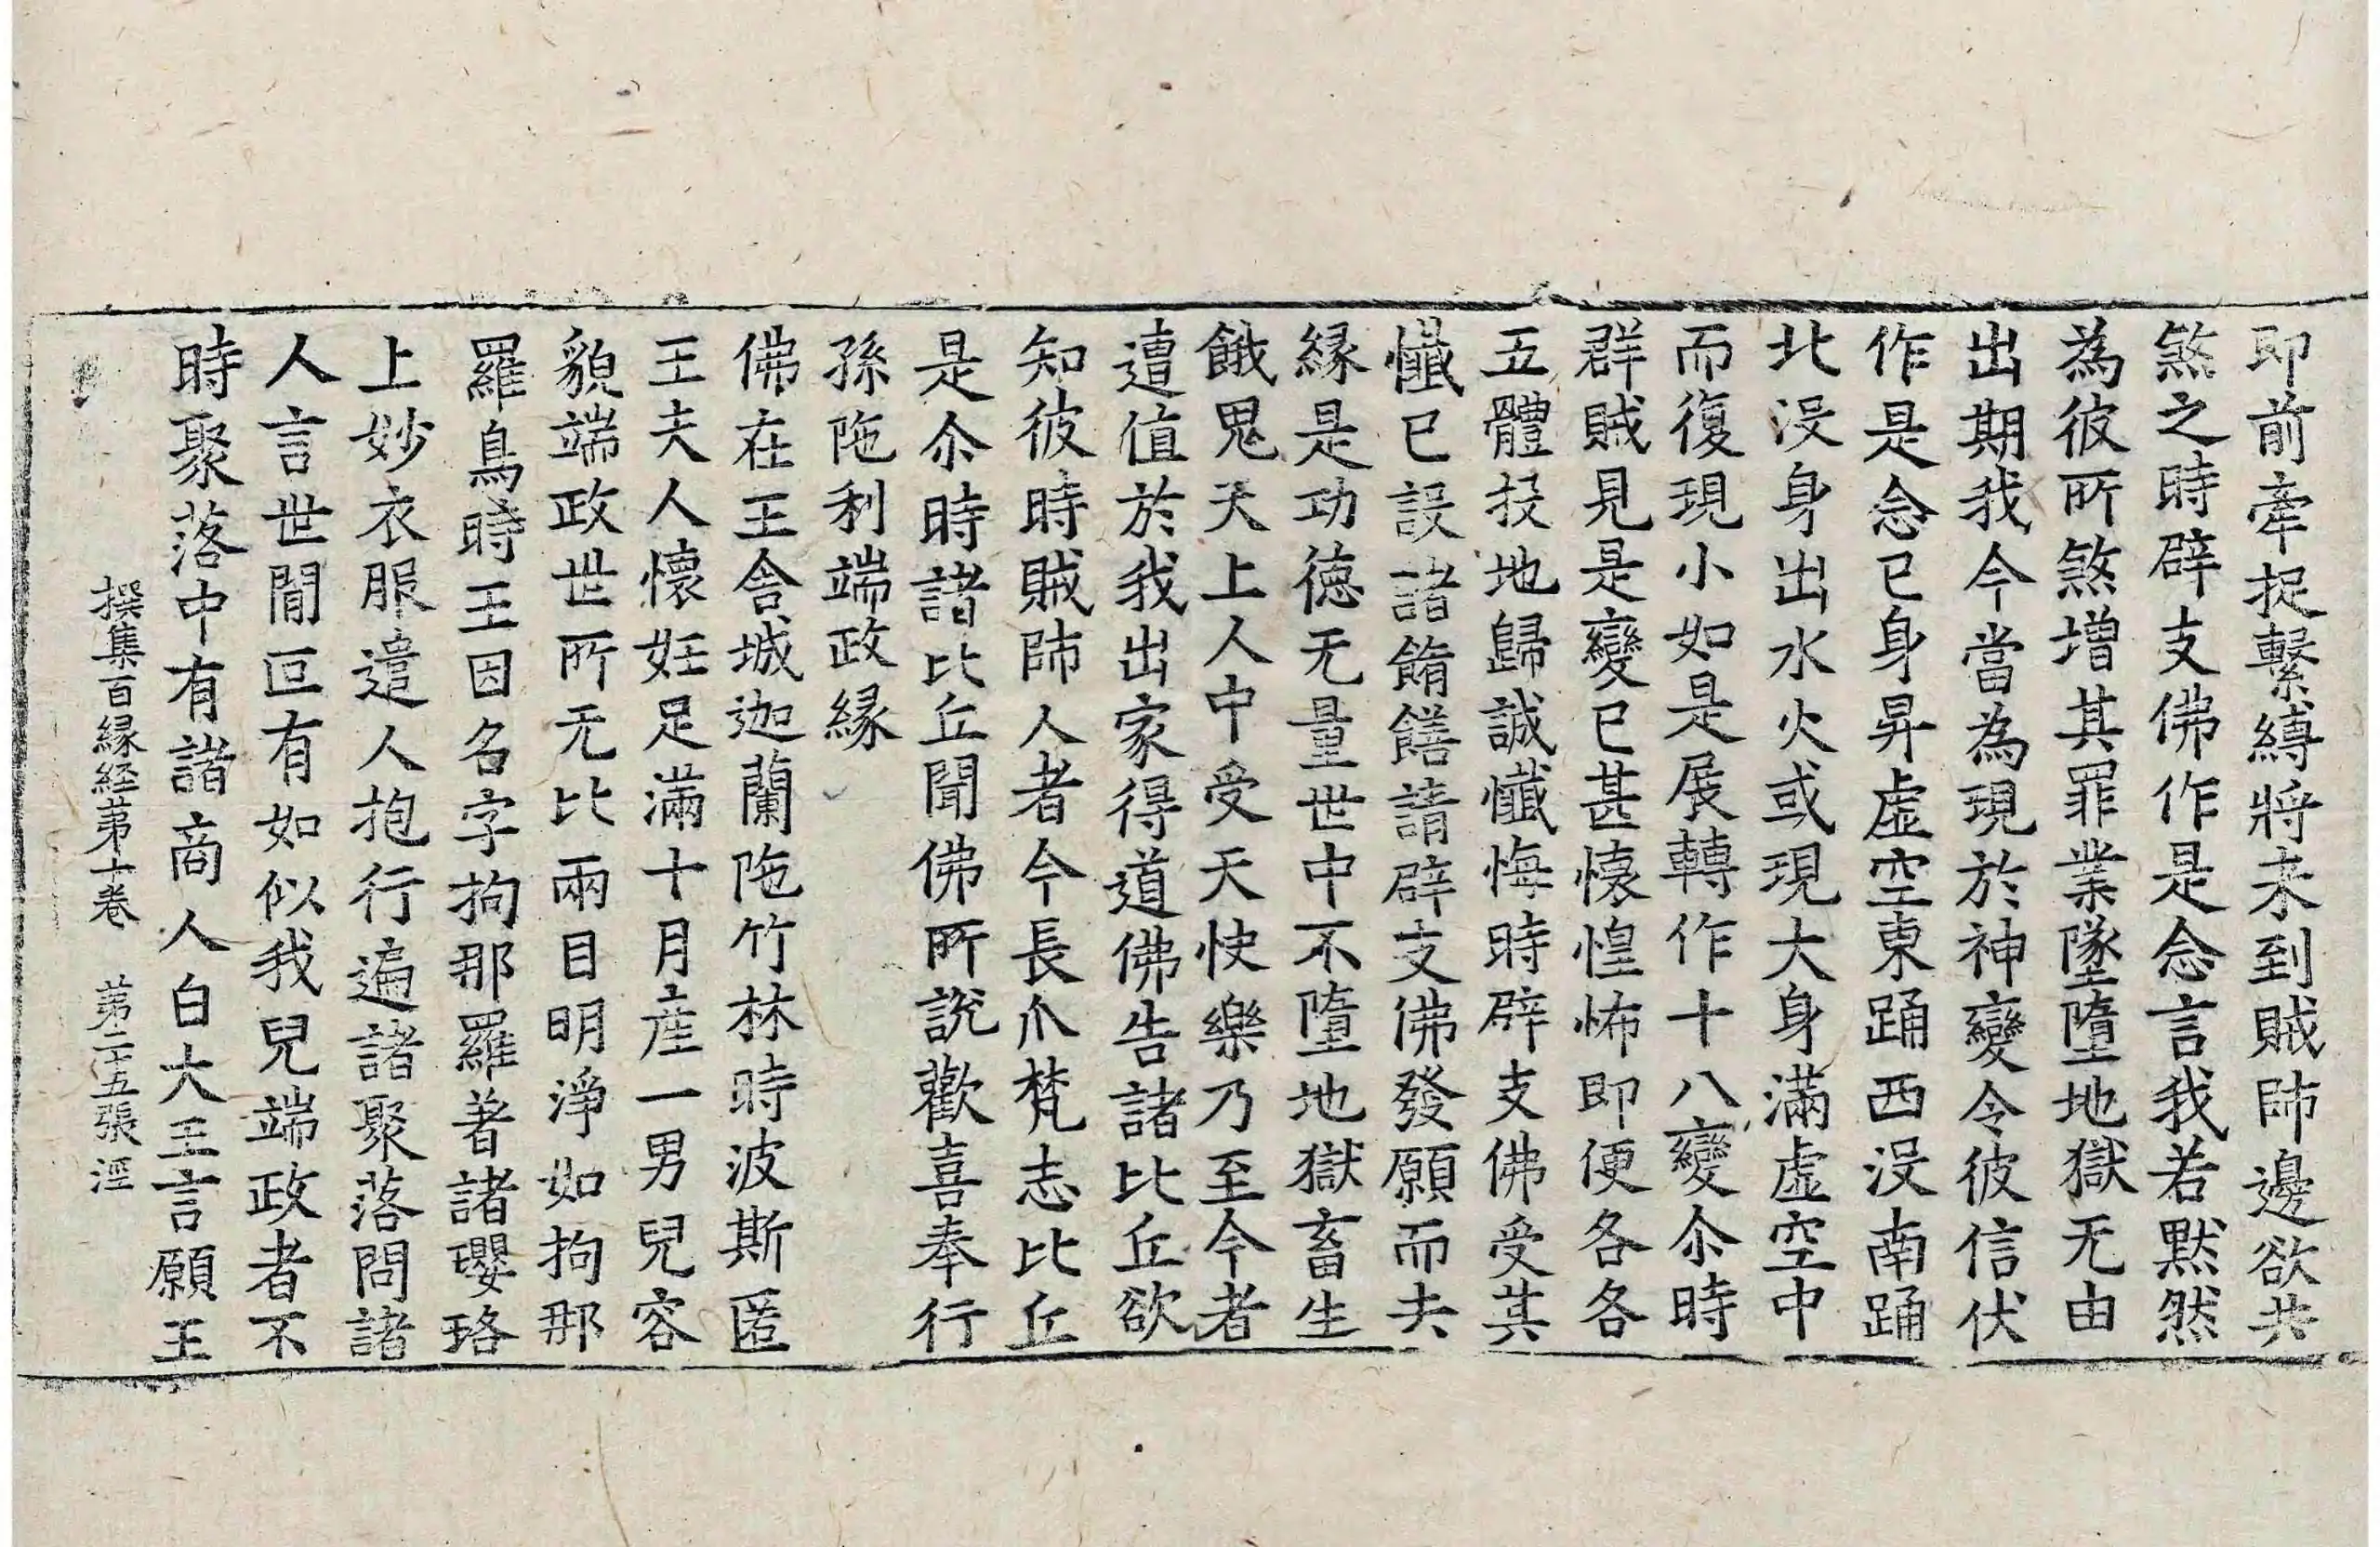 即前牽捉繫縛將來到賊帥邊欲共
煞之時辟支佛作是念言我若默然
為彼所煞增其罪業墜墮地獄无由
出期我今當為現於神變令彼信伏
作是念已身昇虛空東踊西没南踊
北没身出水火或現大身滿虛空中
而復現小如是展轉作十八變尒時
群賊見是變已甚懷惶怖即便各各
五體投地歸誠懺悔時辟支佛受其
懺已設諸餚饍請辟支佛發願而去
緣是功德无量世中不墮地獄畜生
餓鬼天上人中受天快樂乃至今者
遭值於我出家得道佛告諸比丘欲
知彼時賊帥人者今長爪梵志比丘
是尒時諸比丘聞佛所說歡喜奉行
孫陁利端政緣
佛在王舍城迦蘭陁竹林時波斯匿
王夫人懷妊足滿十月產一男兒容
貌端政世所无比兩目明淨如拘那
羅鳥時王因名字拘那羅著諸瓔珞
上妙衣服遣人抱行遍諸聚落問諸
人言世間叵有如似我兒端政者不
時聚落中有諸商人白大王言願王
撰集百緣経苐十卷 苐二十五張 涇